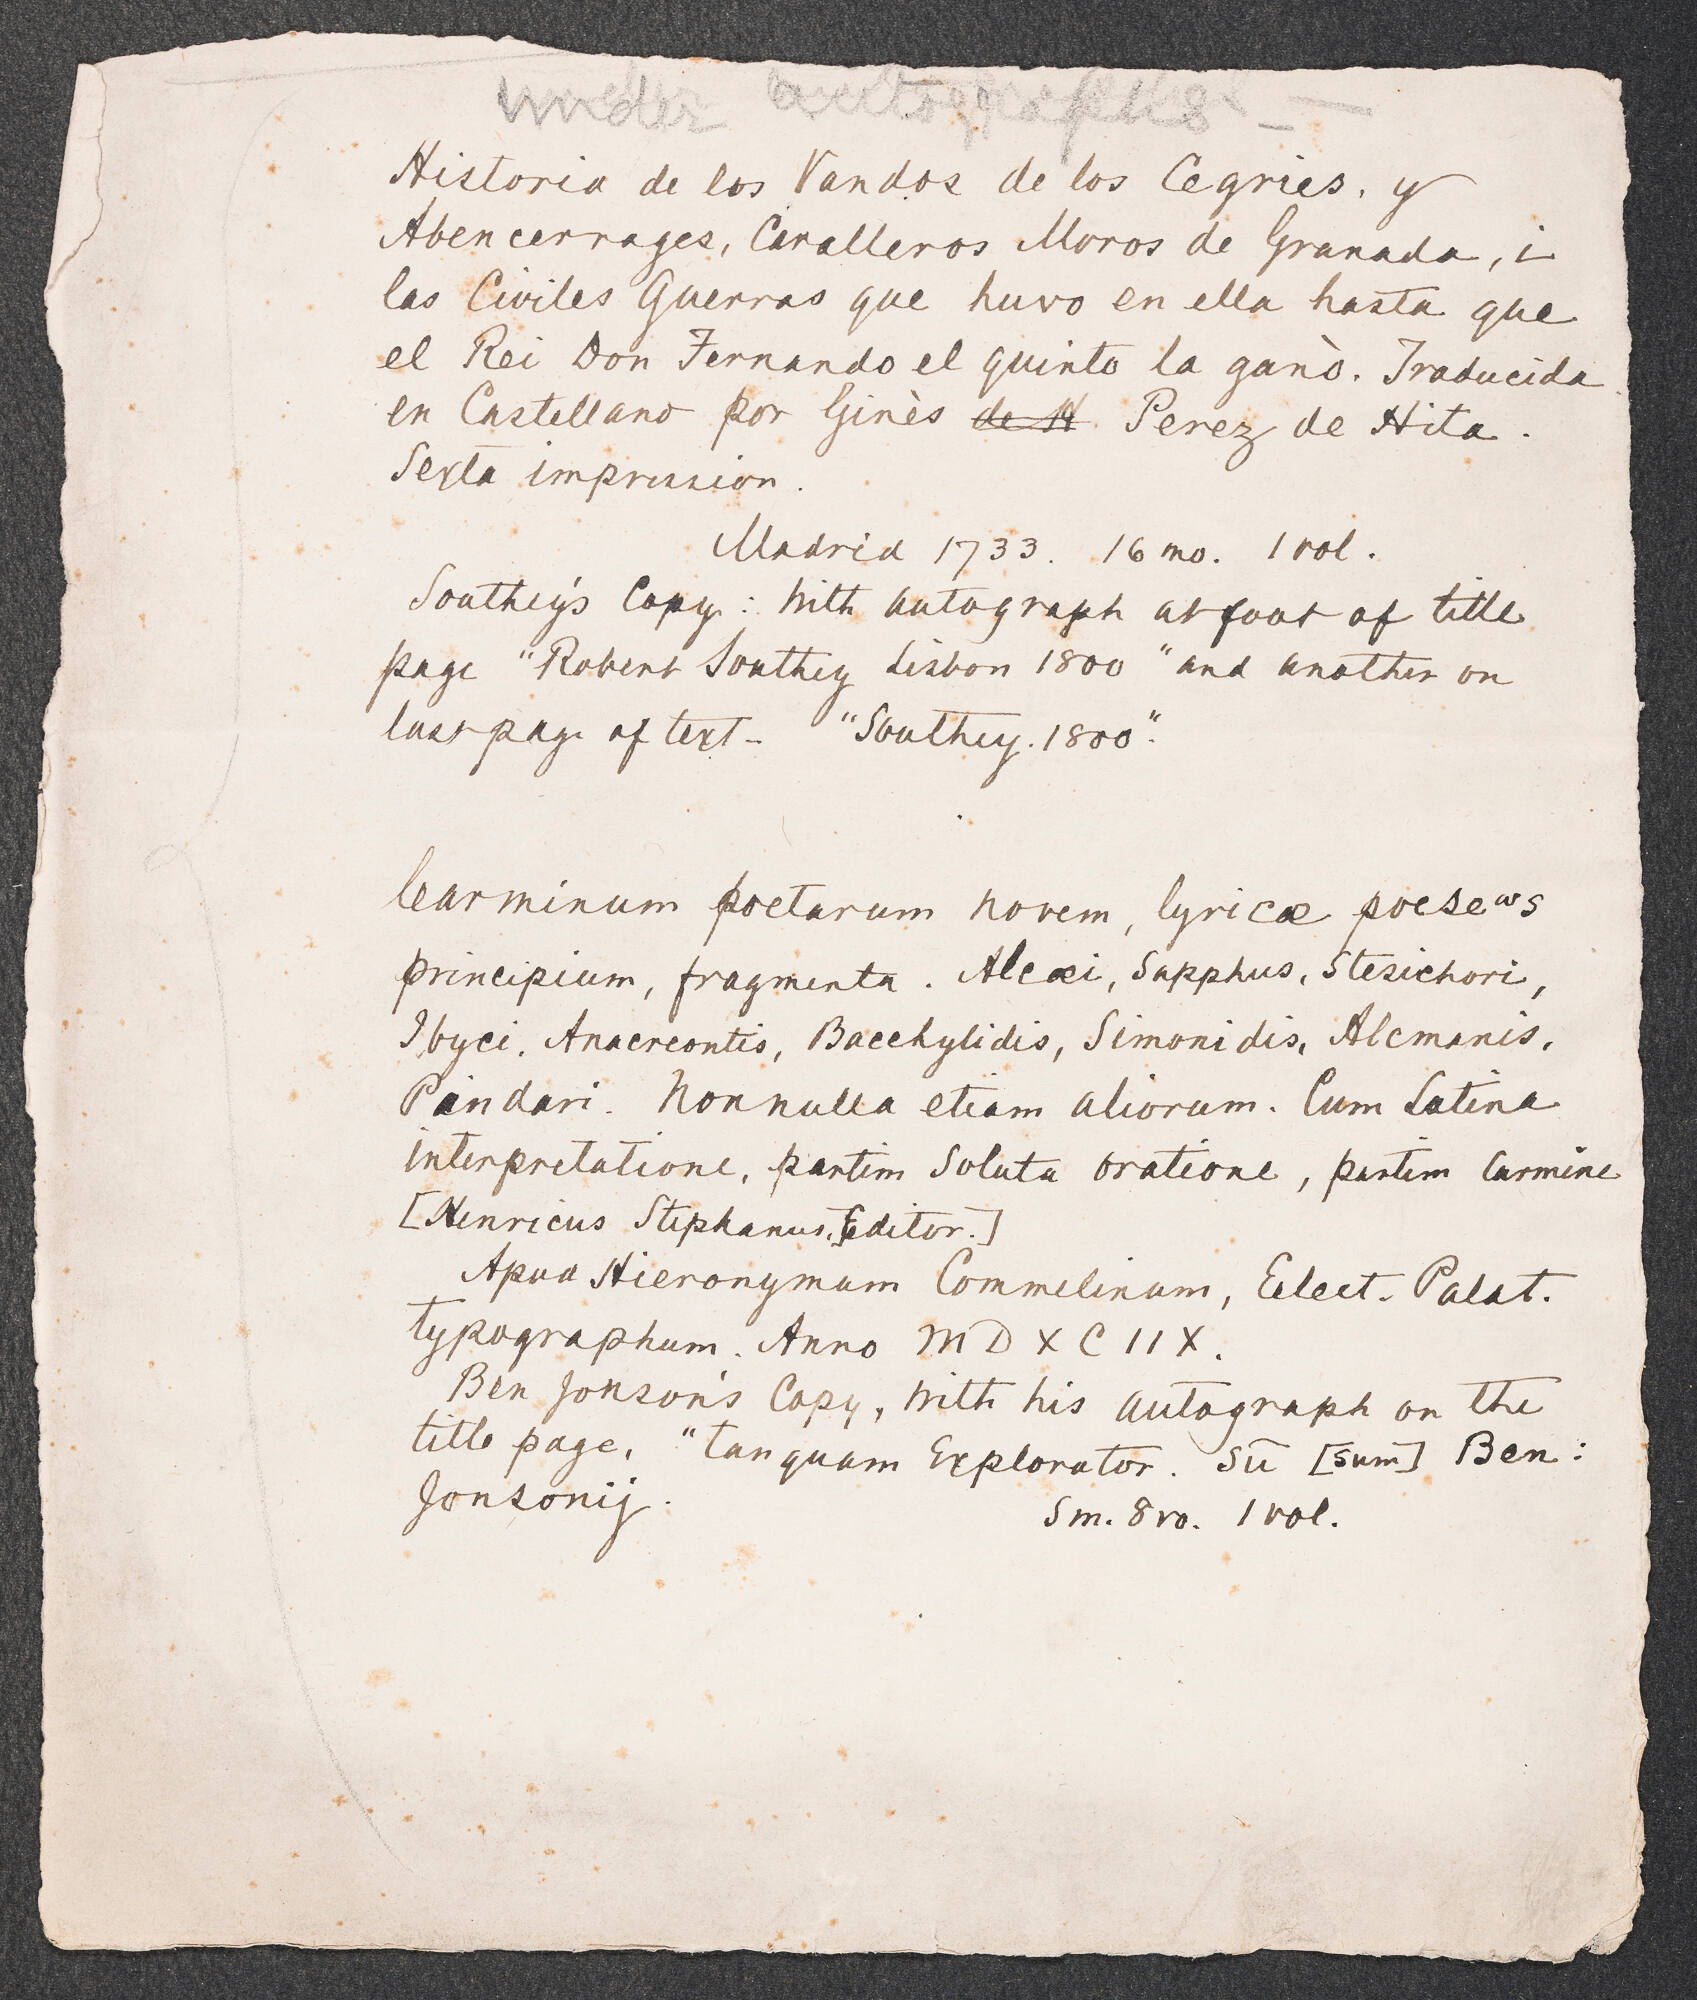 under autographs —
Historia de los Vandos de los Cegries, y
Abencerrages, Cavalleros Moros de Granada, i
las Civiles Guerras que huvo en ella hasta que
el Rei Don Fernando el quinto la ganò. Traducida
en Castellano por Ginès de H Perez de Hita.
Sexta impression.
Madrid 1733. 16 mo. 1 vol.
Southey's Copy: With autograph at foot of title
page "Robert Southey Lisbon 1800" and another on
last page of text - "Southey. 1800".
Carminum poetarum novem, lyricæ poeseωs
principium, fragmenta. Alcæi, Sapphus, Stesichori,
Ibyci, Anacreontis, Bacchylidis, Simonidis, Alcmanis,
Pindari. Nonnulla etiam aliorum. Cum Latina
interpretatione, partim Soluta oratione, partim Carmine
[Henricus Stephanus, Editor.]
Apud Hieronymum Commelinum, Elect. Palat.
typographum. Anno MDXCIIX.
Ben Jonson's Copy, With his autograph on the
title page, "tanquam Explorator. sū [sum] Ben:
Jonsonij.
Sm. 8vo. 1 vol.